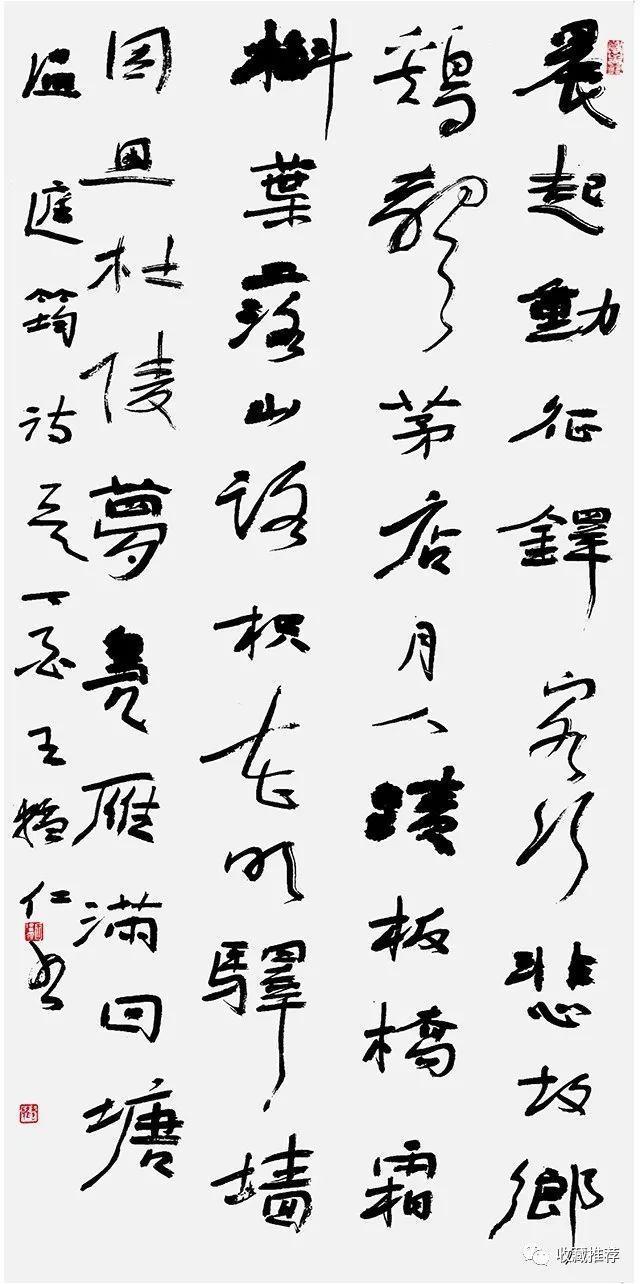 晨起動征鐸客行悲故鄉
鷄聲茅店月人蹟板橋霜
槲葉落山路枳花明驛墙
因思杜陵夢鳧雁滿回塘
温庭筠诗 丁酉王猛仁书
收藏推荐